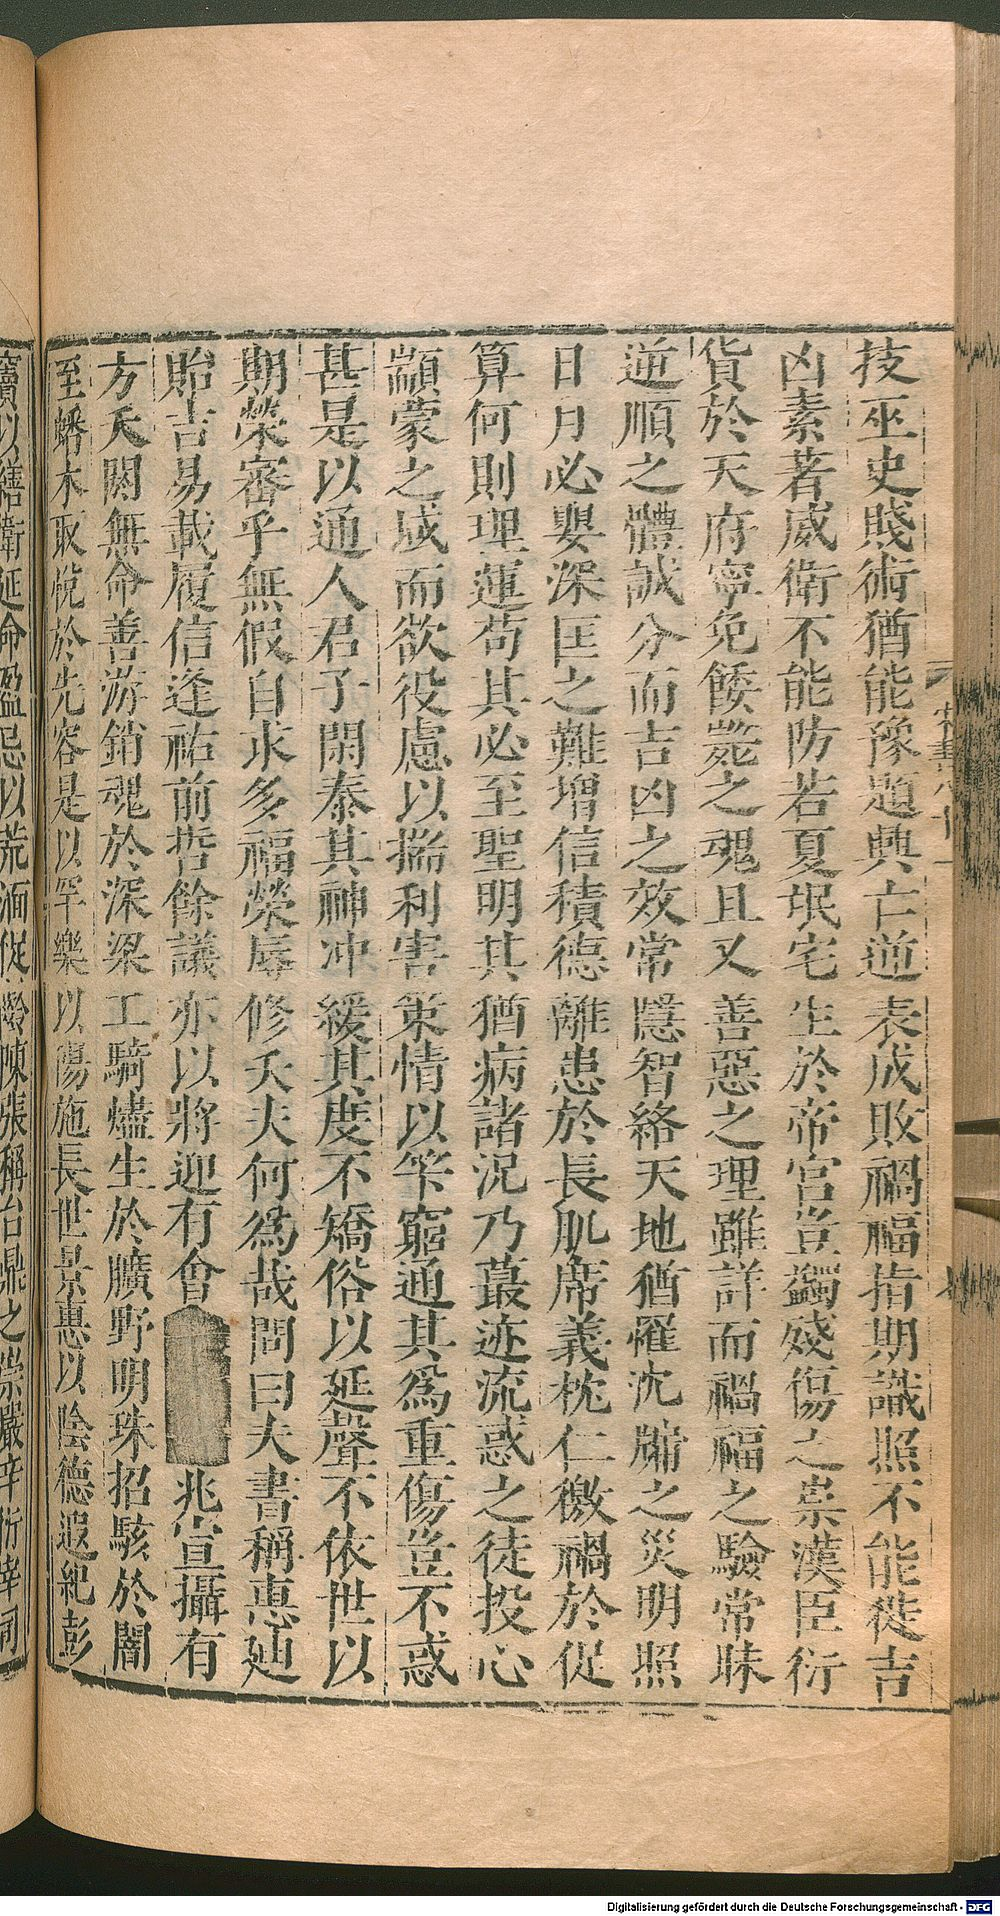 技巫史賤術猶能豫題興亡逆表成敗禍福指期識照不能徙吉
凶素著威衛不能防若夏氓宅生於帝宮豈蠲殘傷之祟漢臣衍
貨於天府寧免餧斃之魂且又善惡之理雖詳而禍福之驗常昧
逆順之體誠分而吉凶之效常隱智絡天地猶罹沈牖之災明照
日月必嬰深匡之難增信積德離患於長肌席義枕仁徼禍於促
算何則理運苟其必至聖明其猶病諸況乃蕞迹流惑之徒投心
顓蒙之域而欲役慮以揣利害策情以筭窮通其為重傷豈不惑
甚是以通人君子閑泰其神沖緩其度不矯俗以延聲不依世以
期榮審乎無假自求多福榮辱修夭夫何為哉問曰夫書稱惠迪
貽吉易載履信逢祐前哲餘議亦以將迎有會兆宣攝有
方夭閼無命善游銷魂於深梁工騎燼生於曠野明珠招駭於闇
至蟠木取悅於先容是以罕樂以陽施長世景惠以陰德遐紀彭
竇以繕衛延命盈忌以荒湎促齡陳張稱台鼎之崇嚴辛衍宰司
Digitalisierung gefördert durch die Deutsche Forschungsgemeinschaft - DFG